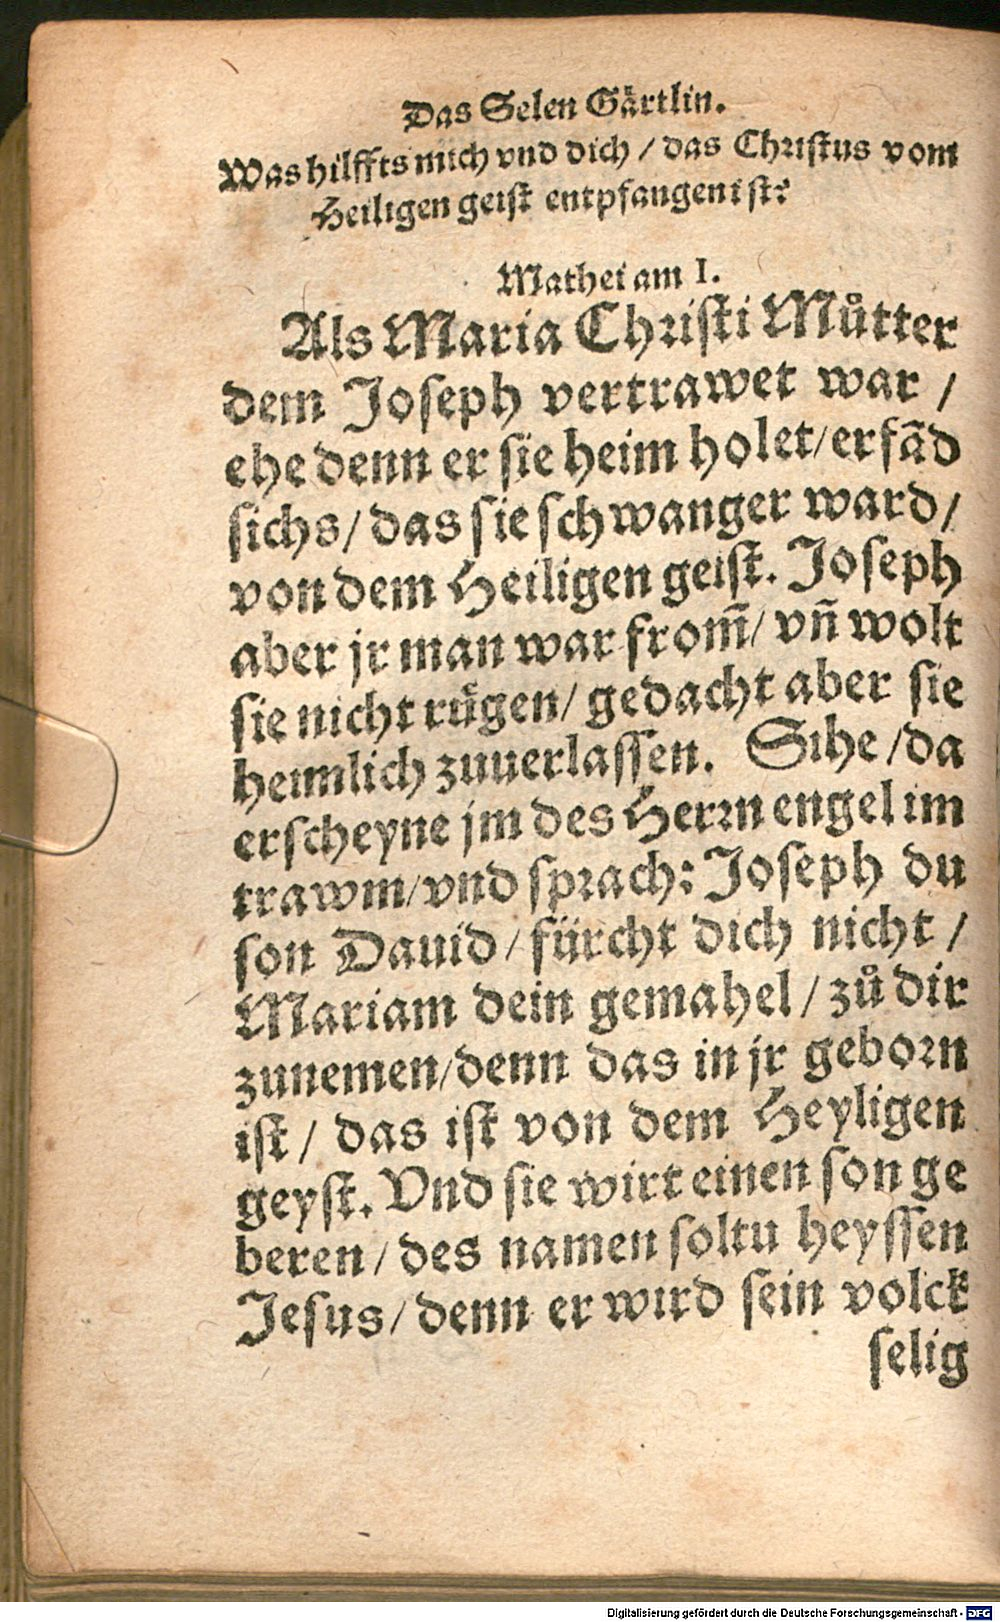 Das Selen Gärtlin.
Was hilffts mich vnd dich / das Christus vom
Heiligen geist entpfangen ist?
Mathei am I.
Als Maria Christi Můtter
dem Joseph vertrawet war /
ehe denn er sie heim holet / erfãd
sichs / das sie schwanger ward /
von dem Heiligen geist. Joseph
aber jr man war from̃ / vñ wolt
sie nicht rügen / gedacht aber sie
heimlich zuuerlassen. Sihe / da
erscheyne jm des Herrn engel im
trawm / vnd sprach: Joseph du
son Dauid / fürcht dich nicht /
Mariam dein gemahel / zů dir
zunemen / denn das in jr geborn
ist / das ist von dem Heyligen
geyst. Vnd sie wirt einen son ge
beren / des namen soltu heyssen
Jesus / denn er wird sein volck
selig
Digitalisierung gefördert durch die Deutsche Forschungsgemeinschaft - DFG